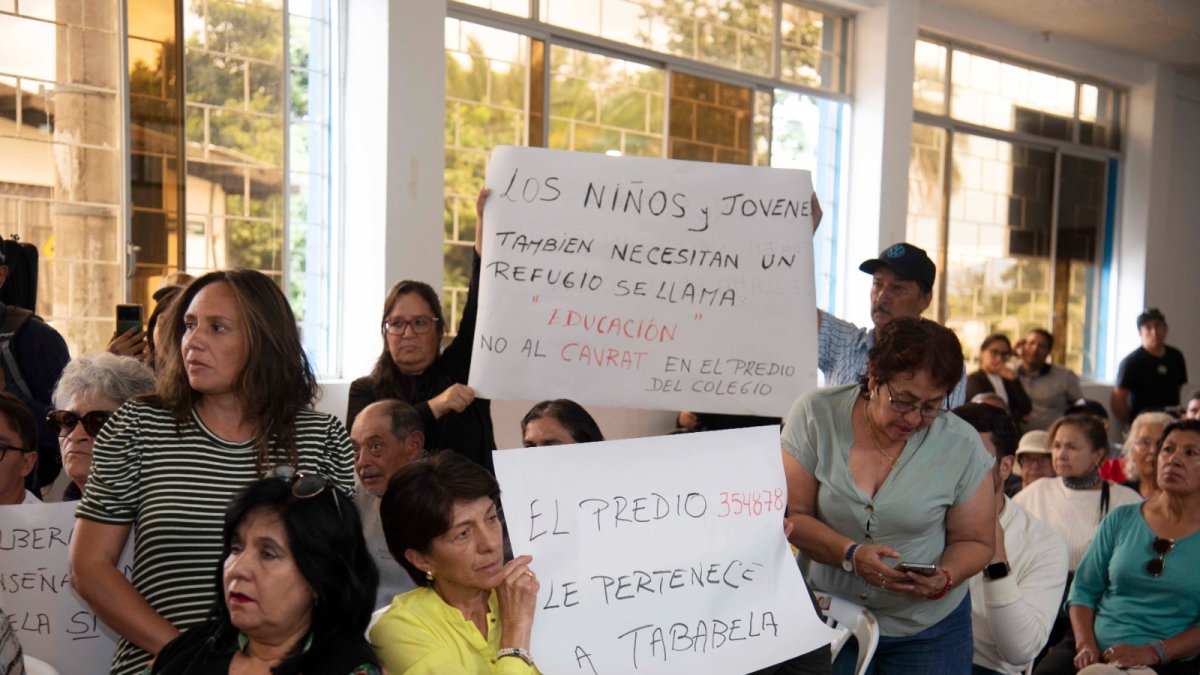 LOS NIÑOS y JOVENE
TAMBIEN NECESITAN UN
REFUGIO SE LLAMA
"EDUCACIÓN"
NO AL CAVRAT EN EL PREDIO
DEL COLEGIO
EL PREDIO 354878
LE PERTENECE
A TABABELA
LBER
NSEÑA
LA SI